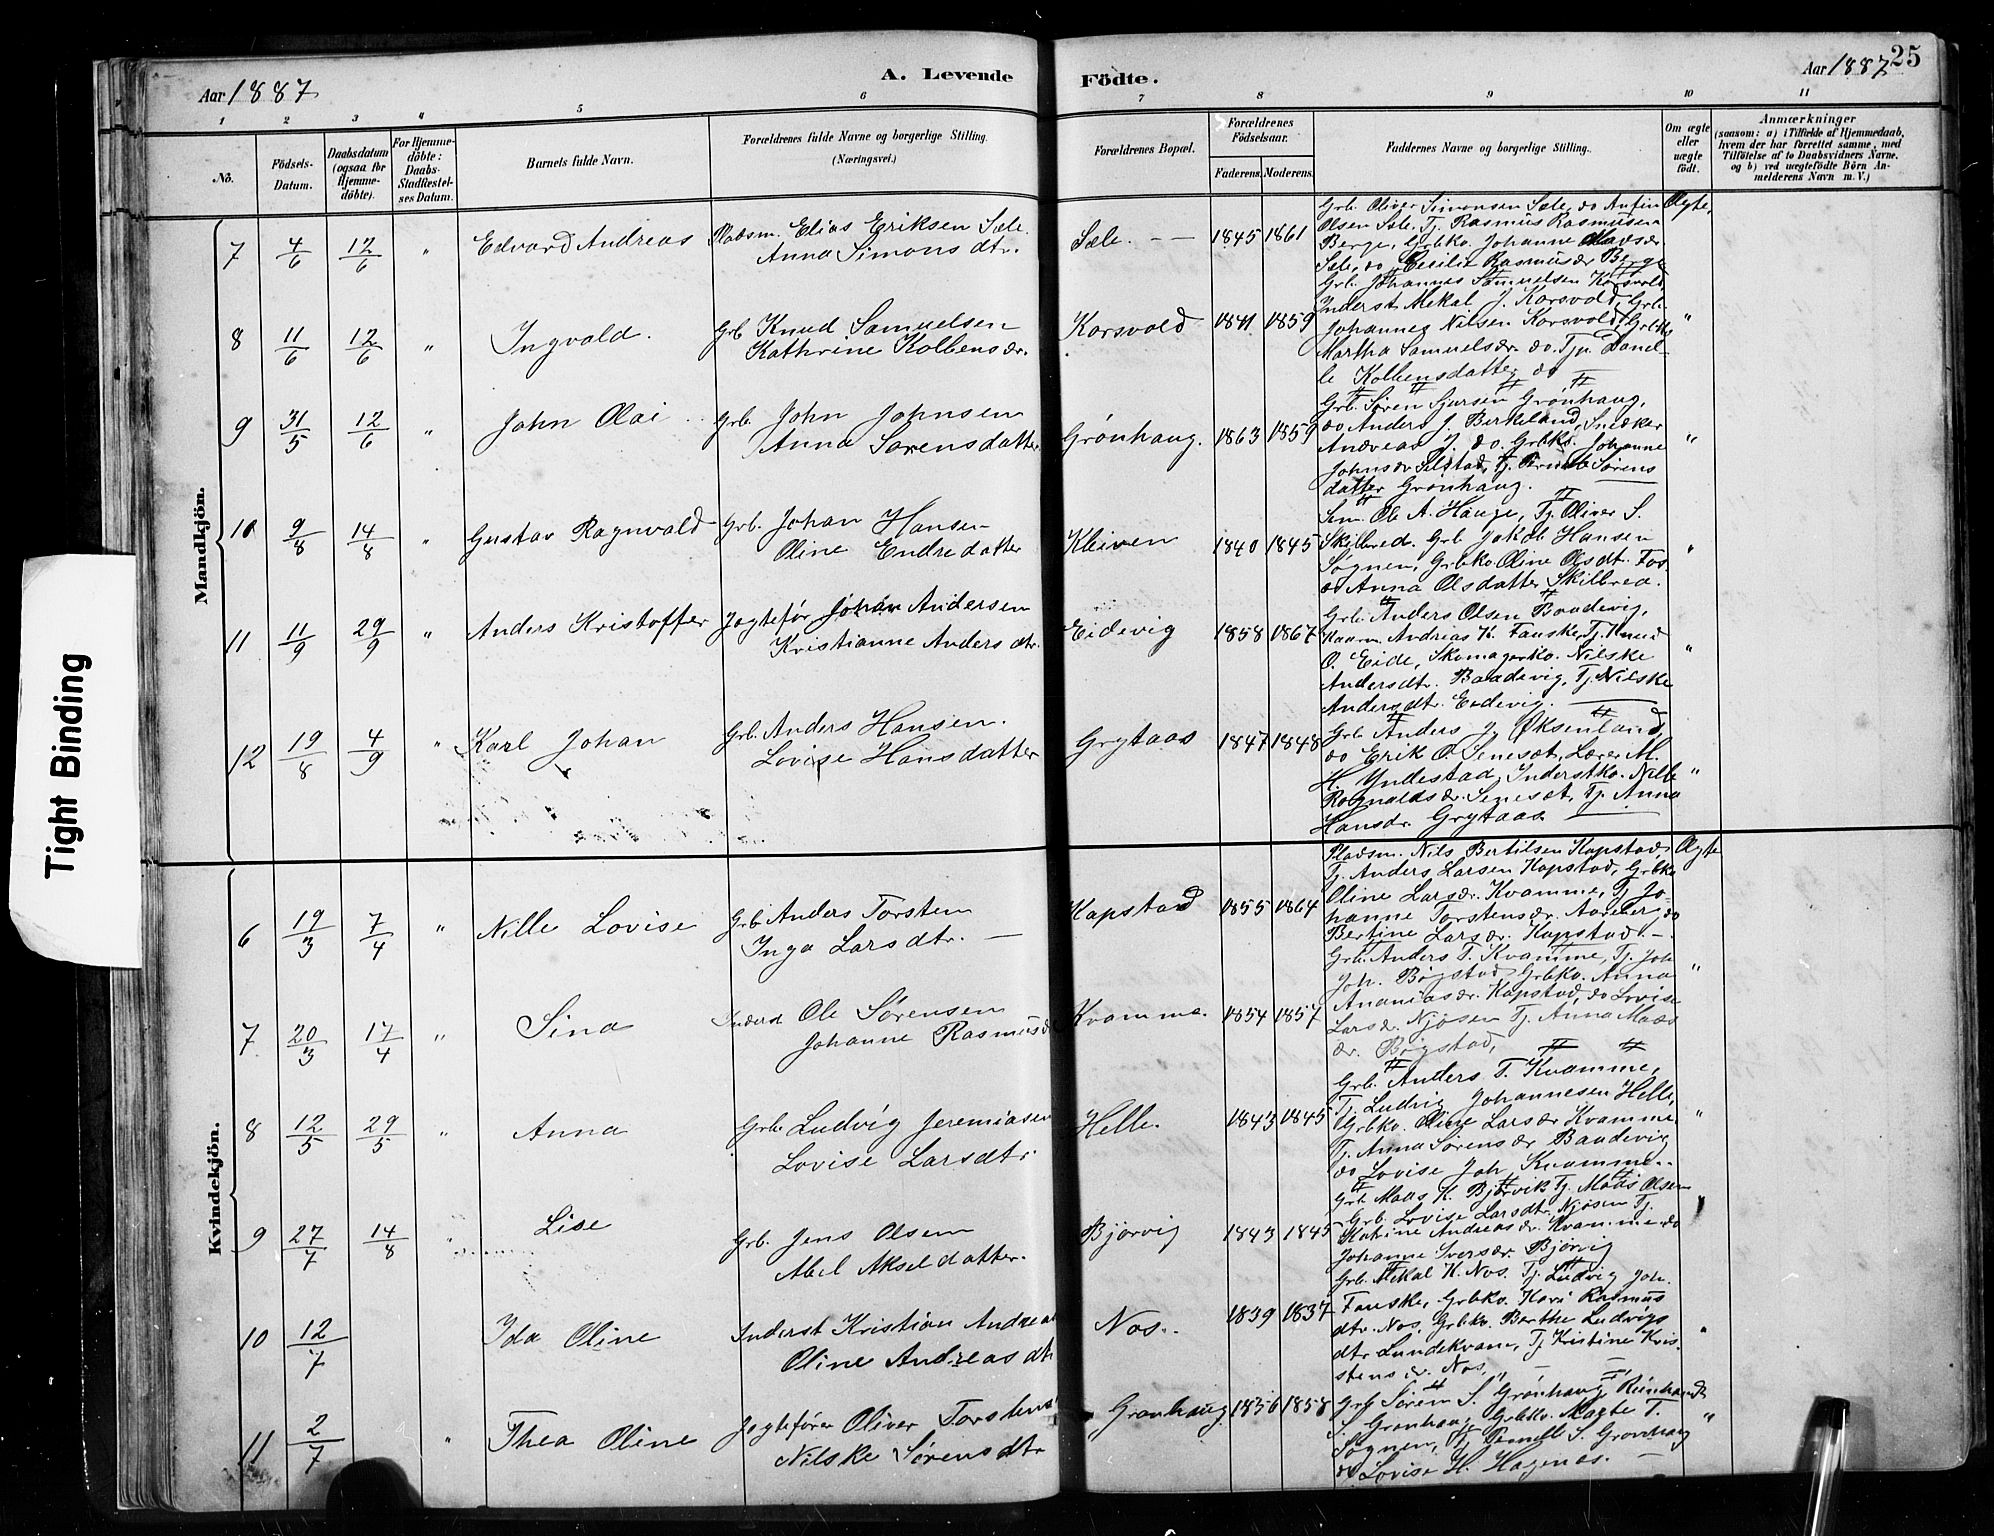 25
Aar 1887
A. Levende
Födte.
Aar 1887
1 2 3 4 5 6 7 8 9 10 11
No.
Födsels-Datum.
Daabsdatum (ogsaa for Hjemmedöbte).
For Hjemmedöbte: Daabs-Stadfæstelses Datum.
Barnets fulde Navn.
Forældrenes fulde Navne og borgerlige Stilling. (Næringsvei.)
Forældrenes Bopæl.
Forældrenes Födselsaar.
Faderens. Moderens.
Faddernes Navne og borgerlige Stilling.
Om ægte eller uægte födt.
Anmærkninger
(saasom: a) i Tilfælde af Hjemmedaab, hvem der har forrettet samme, med Tilföielse af to Daabsvidners Navne, og b) ved uægtefödte Börn Anmelderens Navn m. V.)
Mandkjön.
7 4/6 12/6 " Edvard Andreas Pladsm. Elias Eriksen Sæle. Anna Simonsdtr. Sæle. 1845 1861
Grb. Oliver Simonsen Sæle, do Anfin Ægte,
Olsen Sæle, Tj. Rasmus Rasmusen
Berge, Grbko. Johanne Madsdr.
Sæle, do Cecilie Rasmusdr Berge
8 11/6 12/6 " Ingvald. Grb. Knud Samuelsen Kathrine Kolbensdr. Korsvold 1841 1859
Grb. Johannes Samuelsen Korsvold,
Inderst Mekal J. Korsvold, Grb.
Johannes Nilsen Korsvold, Grbko
Martha Samuelsdr. do. Tjp. Danel-
le Kolbensdatter do
9 31/5 12/6 " John Olai Grb. John Johnsen Anna Sørensdatter Grønhaug. 1863 1859
Grb. Søren Sjursen Grønhaug,
do Anders J. Birkeland, Snedker
Andreas J. do. Grbko. Johanne
Johnsdr Selstad, Tj. Pernille Sørens
datter Grønhaug.
10 9/8 14/8 " Gustav Ragnvald Grb. Johan Hansen Oline Endredatter Kleiven 1840 1845
Sem. Ole A. Hauge, Tj. Oliver S.
Skilbred. Grb Jakob Hansen
Søgnen, Grbko. Oline Olsdt. Fos
do Anna Olsdatter Skilbred.
11 11/9 29/9 " Anders Kristoffer Jægtefør Johan Andersen Kristianne Andersdtr. Eidevig 1858 1867
Grb. Anders Olsen Baadevig,
Andreas K. Fauske, Tj. Knud
O. Eide, Skomagerko. Nilske
Andersdtr. Baadevig, Tj. Nilske
Andersdtr. Eidevig.
12 19/8 4/9 " Karl Johan Grb. Anders Hansen. Lovise Hansdatter Grytaas 1847 1848
Grb. Anders J. Øksenland,
do Erik O. Senesæt, Lærer M.
H. Yndestad, Inderstko. Nille
Rognaldsdr. Senesæt, Tj. Anna
Hansdr. Grytaas
Kvindekjön.
6 19/3 7/4 " Nille Lovise Grb. Anders Torsten Inga Larsdtr. Kapstad 1855 1864
Pladsm. Nils Bertilsen Kapstad, Ægte
Tj. Anders Larsen Kapstad, Grbko
Oline Larsdr. Kvamme, Tj. Jo-
hanne Torstensdr. do
Bertine Larsdr. Kapstad.
7 20/3 17/4 " Sina Inderst Ole Sørensen Johanne Rasmusd Kvamme. 1854 1857
Grb. Anders T. Kvamme, Tj. Joh
Joh. Bøgstad, Grbko. Anna
Ananiasdr. Kapstad, do Lovise
Larsdr. Njøsen Tj. Anna Mads
dr. Bøgstad,
8 12/5 29/5 " Anna Grb. Ludvig Jeremiasen Lovise Larsdtr Helle. 1843 1845
Grb. Anders T. Kvamme,
Tj. Ludvig Johannesen Helle,
Grbko. Oline Larsdr Kvamme
Tj. Anna Sørensdr Baadevig
do Lovise Joh. Kvamme.
9 27/7 14/8 " Lise Grb. Jens Olsen Abel Akseldatter. Bjørvig 1843 1845
Grb. Mads K. Bjørvik Tj. Mads Olsen
Grb. Lovise Larsdtr. Njøsen Tj.
Katrine Andreasdr. Kvamme do
Johanne Iversdr. Bjørvig
10 12/7 Ida Oline Inderst Kristian Andreas Oline Andreasdtr Nos. 1839 1837
Grb. Mekal K. Nos. Tj. Ludvig Joh.
Fauske, Grbko. Kari Rasmus
dtr. Nos, Grbko. Berthe Ludvigs
dtr Lundekvam, Tj Kristine Kris-
stensdr. Nos,
11 2/7 " Thea Oline Jægtefører Oliver Torstens Nilske Sørensdtr Grønhaug 1856 1858
Grb Søren S. Grønhaug, Reinhardt
S. Grønhaug, Grbko. Magte T.
Søgnen, Tj. Pernille S. Grønhaug
do Lovise H. Hagenæs.
Tight Binding